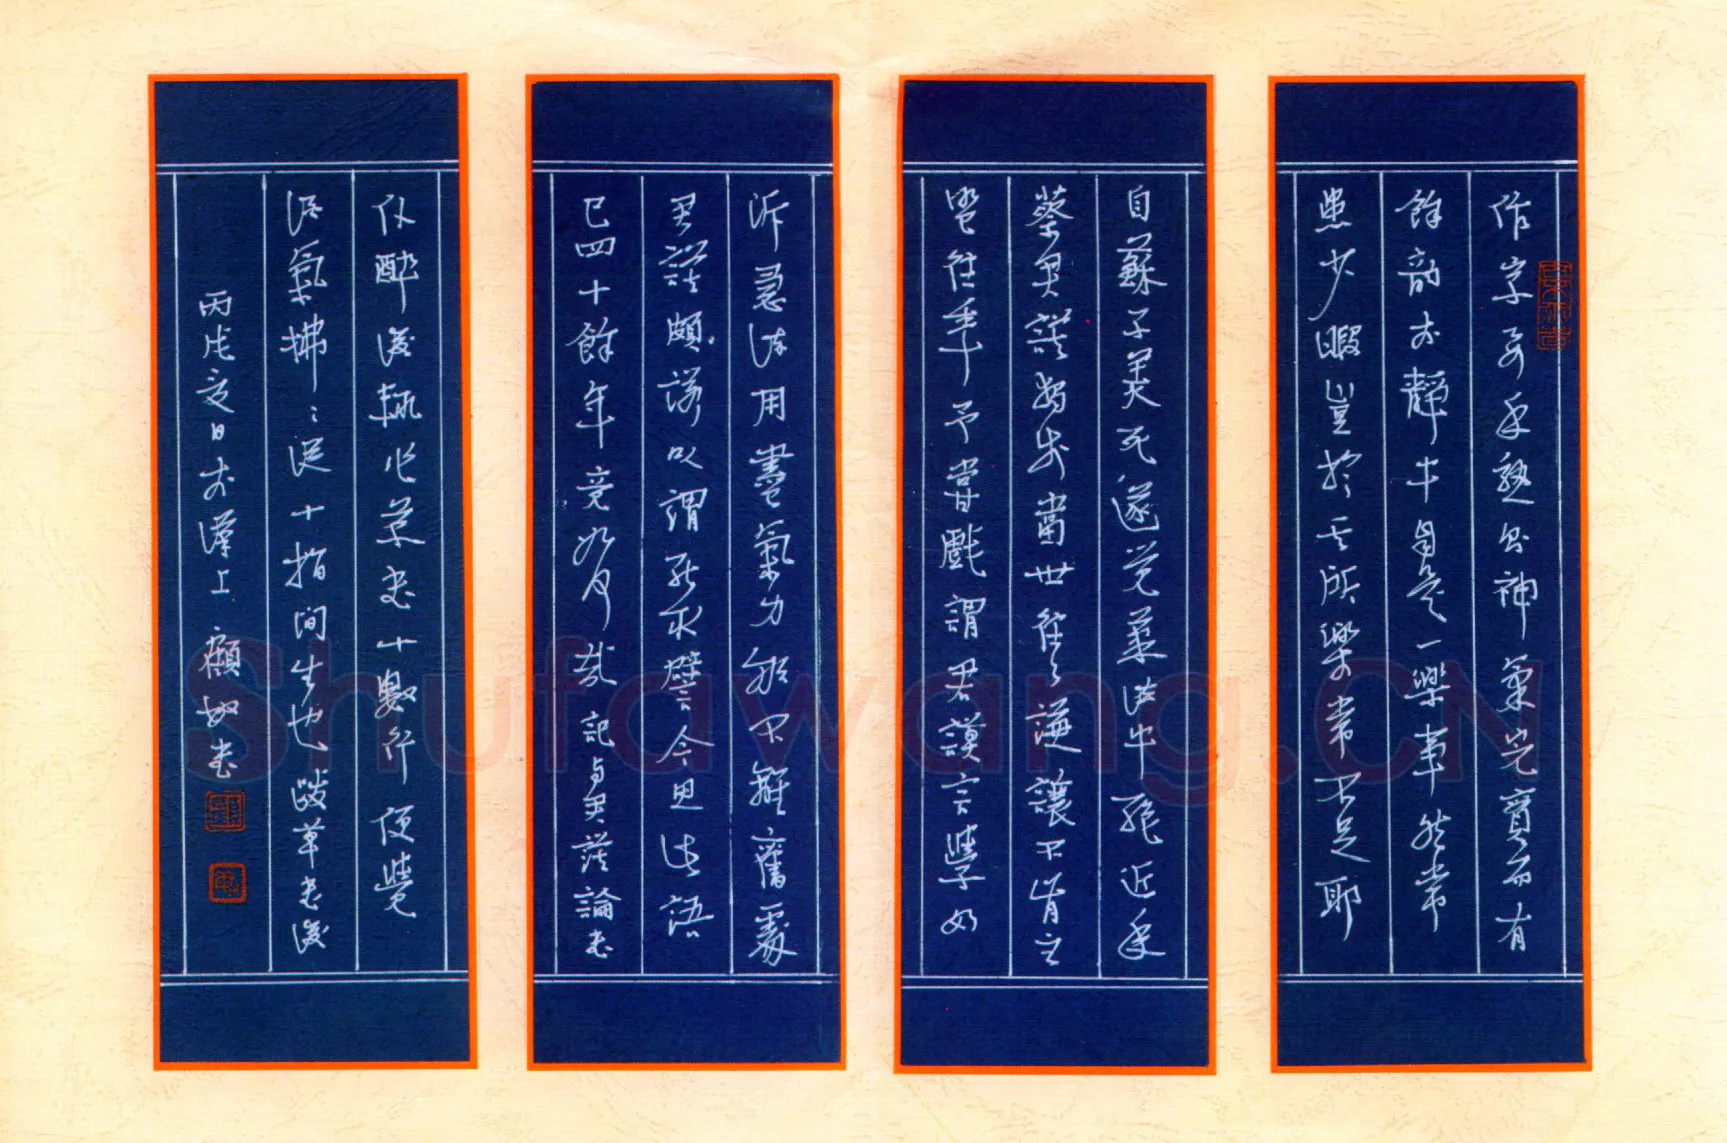 作字要手熟則神氣完實而有
餘韻於靜中自是一樂事然常
患少暇豈於其所樂常不足耶
自蘇子美死遂覺筆法中絕近年
蔡君謨獨步當世往往謙讓不肯主
盟往年予嘗戲謂君謨言學如
泝急流用盡氣力船不離舊處
君謨頗諾以謂能取譬今思此語
已四十餘年竟如何哉 記與君謨論書
僕醉後輒作草書十數行便覺
酒氣拂拂從十指間出也 跋草書後
丙戌夏日於漢上 顧 書
Shufawang.CN